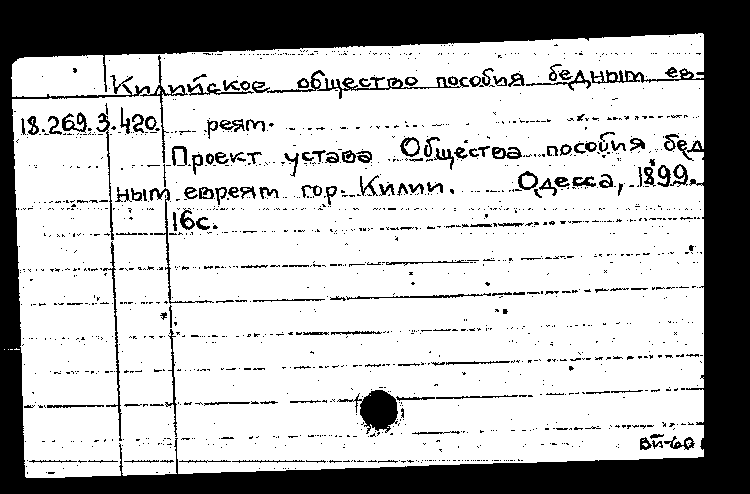 Килийское общество пособия бедным ев-
18.269.3.420 реям.
Проект устава Общества пособия бед
ным евреям гор. Килии. Одесса, 1899.
16с.